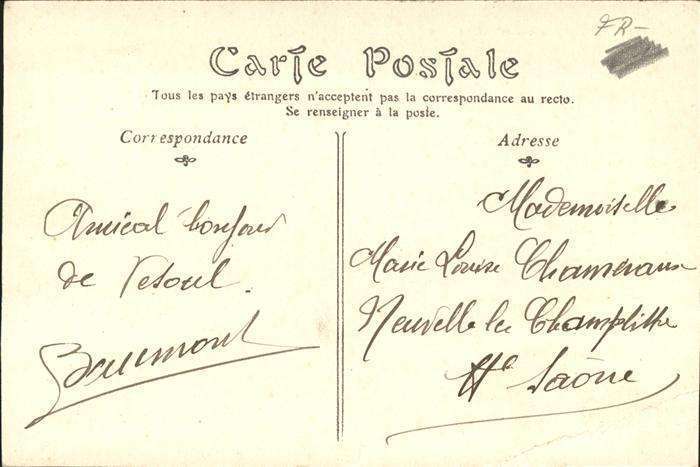 FR-
Carte Postale
Tous les pays étrangers n'acceptent pas la correspondance au recto.
Se renseigner à la poste.
Correspondance
Amical bonjour
de Vesoul.
Beaumont
Adresse
Mademoiselle
Marie Louise
Neuvelle les Champlitte
Hte Saône